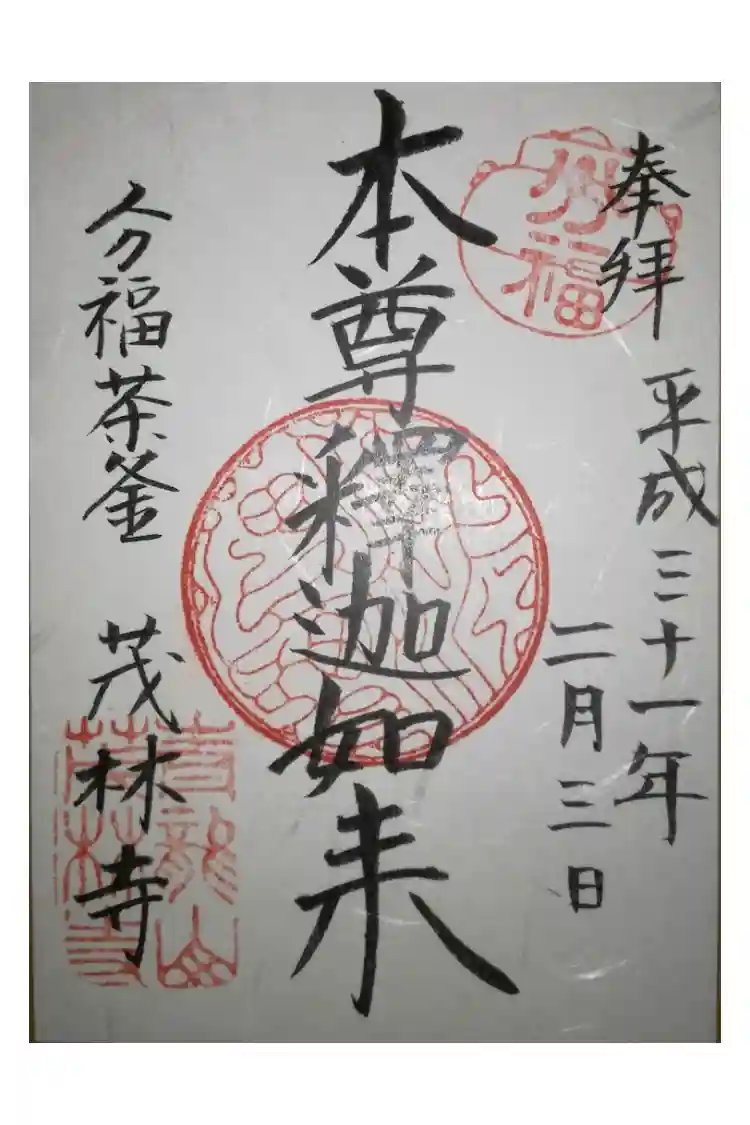 奉拝
平成三十一年
二月三日
本尊釋迦如来
分福茶釜
茂林寺
分福
青龍山
茂林寺